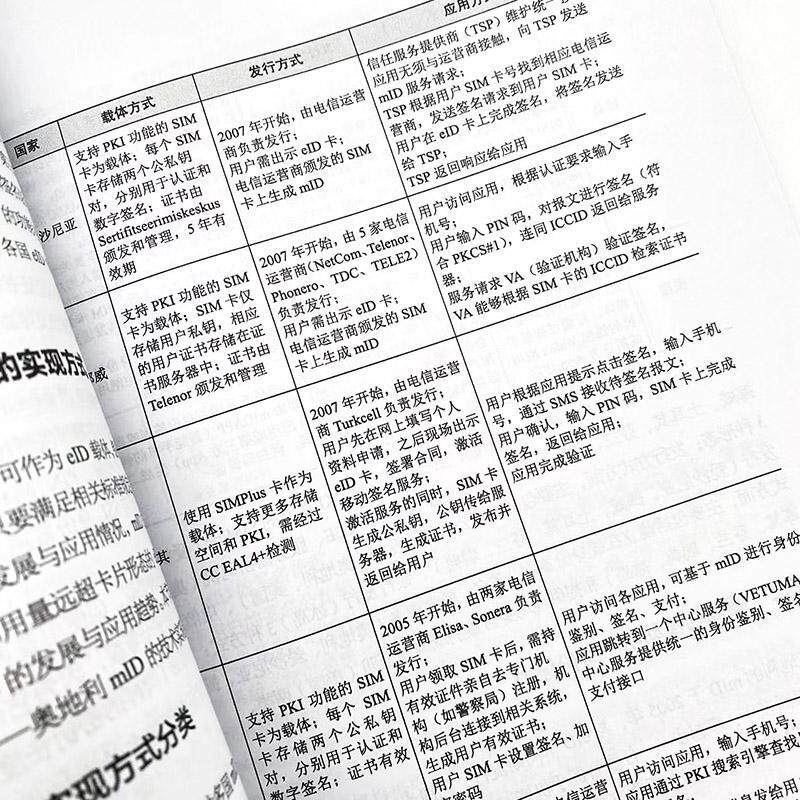 国家
载体方式
发行方式
应用方
沙尼亚
支持 PKI 功能的 SIM
卡为载体；每个 SIM
卡存储两个公私钥
对，分别用于认证和
数字签名；证书由
Sertifitseerimiskeskus
颁发和管理，5 年有
效期
2007 年开始，由电信运营
商负责发行；
用户需出示 eID 卡；
电信运营商颁发的 SIM
卡上生成 mID
信任服务提供商（TSP）维护统一
应用无须与运营商接触，向 TSP 发送
mID 服务请求；
TSP 根据用户 SIM 卡号找到相应电信运
营商，发送签名请求到用户 SIM 卡；
用户在 eID 卡上完成签名，将签名发送
给 TSP；
TSP 返回响应给应用
威
支持 PKI 功能的 SIM
卡为载体；SIM 卡仅
存储用户私钥，相应
的用户证书存储在证
书服务器中；证书由
Telenor 颁发和管理
2007 年开始，由 5 家电信
运营商(NetCom、Telenor、
Phonero、TDC、TELE2)
负责发行；
用户需出示 eID 卡；
电信运营商颁发的 SIM
卡上生成 mID
用户访问应用，根据认证要求输入手
机号；
用户输入 PIN 码，对报文进行签名（符
合 PKCS#1），连同 ICCID 返回给服务
器；
服务请求 VA（验证机构）验证签名，
VA 能够根据 SIM 卡的 ICCID 检索证书
其
使用 SIMPlus 卡作为
载体；支持更多存储
空间和 PKI，需经过
CC EAL4+检测
2007 年开始，由电信运营
商 Turkcell 负责发行；
用户先在网上填写个人
资料申请，之后现场出示
eID 卡，签署合同，激活
移动签名服务；
激活服务的同时，SIM 卡
生成公私钥，公钥传给服
务器，生成证书，发布并
返回给用户
用户根据应用提示点击签名，输入手机
号，通过 SMS 接收待签名报文；
用户确认，输入 PIN 码，SIM 卡上完成
签名，返回给应用；
应用完成验证
支持 PKI 功能的 SIM
卡为载体；每个 SIM
卡存储两个公私钥
对，分别用于认证和
数字签名；证书有效
2005 年开始，由两家电信
运营商 Elisa、Sonera 负责
发行；
用户领取 SIM 卡后，需持
有效证件亲自去专门机
构（如警察局）注册，机
构后台连接到相关系统，
生成用户有效证书；
用户 SIM 卡设置签名、加
密码
用户访问各应用，可基于 mID 进行身份
鉴别、签名、支付；
应用跳转到一个中心服务（VETUMA
中心服务提供统一的身份鉴别、签名
支付接口
电信运营
用户访问应用，输入手机号；
应用通过 PKI 搜索引擎查找
各国
的实现方式
可作为 eID 载体
要满足相关标准
发展与应用情况，
用量远超卡片形态
的发展与应用趋势，
——奥地利 mID 的技术
实现方式分类